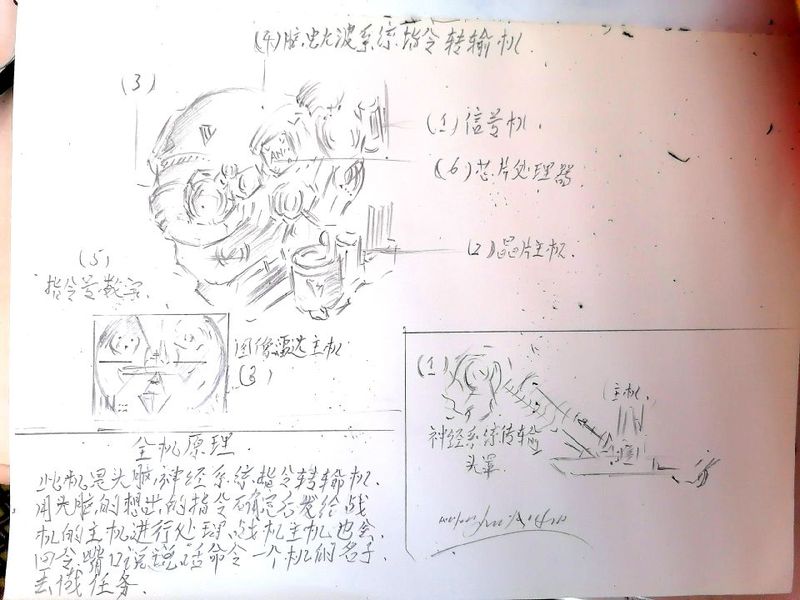 (4)脑电波系统指令转输机
(3)
(1)信号机.
(6)芯片处理器
(2)晶片主机.
(5)
指令是数字.
AN
图像雷达主机
(3)
(1)
主机.
神经系统传输
头罩.
全机原理.
此机是头脑神经系统指令转输机.
用头脑的想出的指令确定后发给战
机的主机进行处理.战机主机也会.
回令.嘴口说说话命令一个机的名子
去做任务.